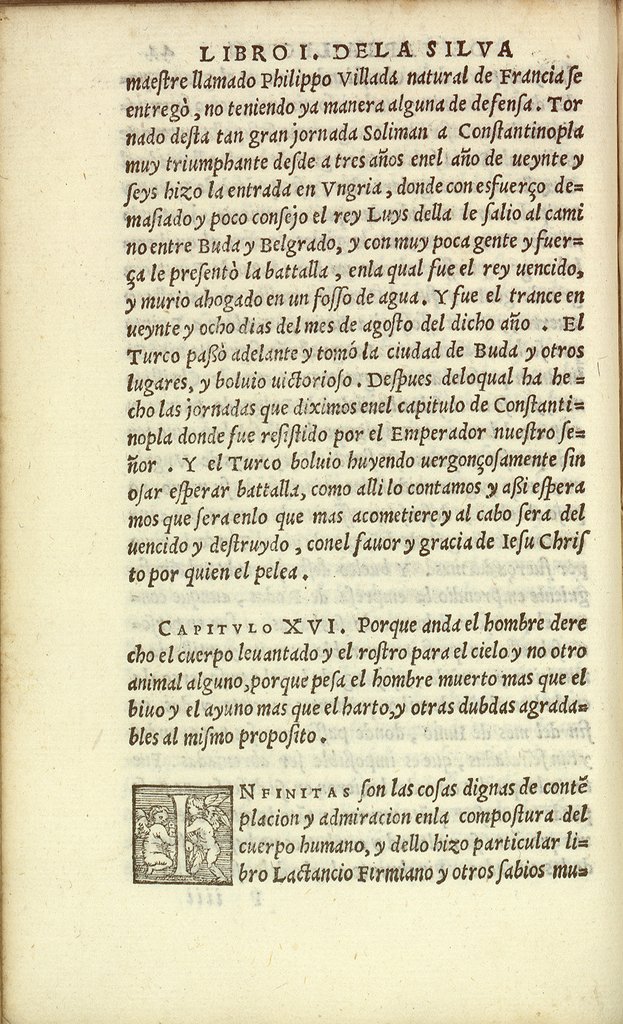 LIBRO I. DE LA SILVA
maeſtre llamado Philippo Villada natural de Francia ſe
entregò, no teniendo ya manera alguna de defenſa. Tor
nado deſta tan gran jornada Soliman a Conſtantinopla
muy triumphante deſde a tres años enel año de ueynte y
ſeys hizo la entrada en Vngria, donde con esfuerço de=
maſiado y poco conſejo el rey Luys della le ſalio al cami
no entre Buda y Belgrado, y con muy poca gente y fuer=
ça le preſentò la battalla, enla qual fue el rey uencido,
y murio ahogado en un foſſo de agua. Y fue el trance en
ueynte y ocho dias del mes de agoſto del dicho año. El
Turco paßò adelante y tomó la ciudad de Buda y otros
lugares, y boluio uictorioſo. Deſpues deloqual ha he=
cho las jornadas que diximos enel capitulo de Conſtanti=
nopla donde fue reſiſtido por el Emperador nueſtro ſe=
ñor. Y el Turco boluio huyendo uergonçoſamente ſin
oſar eſperar battalla, como alli lo contamos y aßi eſpera
mos que ſera enlo que mas acometiere y al cabo ſera del
uencido y deſtruydo, conel fauor y gracia de Ieſu Chriſ
to por quien el pelea.
CAPITVLO XVI. Porque anda el hombre dere
cho el cuerpo leuantado y el roſtro para el cielo y no otro
animal alguno, porque peſa el hombre muerto mas que el
biuo y el ayuno mas que el harto, y otras dubdas agrada=
bles al miſmo propoſito.
INFINITAS ſon las coſas dignas de contē
placion y admiracion enla compoſtura del
cuerpo humano, y dello hizo particular li
bro Lactancio Firmiano y otros ſabios mu=